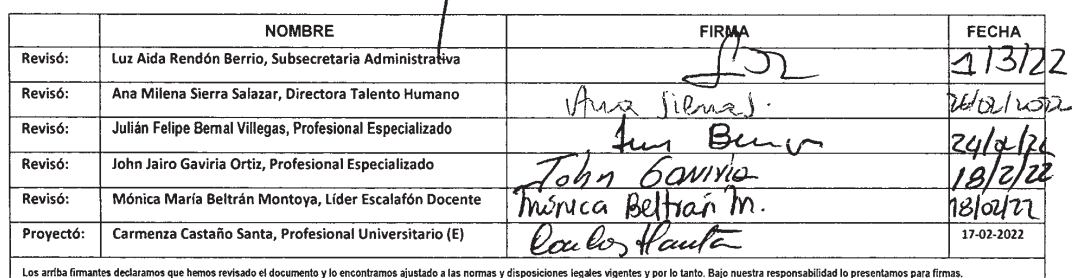 NOMBRE FIRMA FECHA
Revisó: Luz Aida Rendón Berrio, Subsecretaria Administrativa 1/3/22
Revisó: Ana Milena Sierra Salazar, Directora Talento Humano Ana Sierra S.
Revisó: Julián Felipe Bernal Villegas, Profesional Especializado
Revisó: John Jairo Gaviria Ortiz, Profesional Especializado John Gaviria 18/2/22
Revisó: Mónica María Beltrán Montoya, Líder Escalafón Docente Mónica Beltrán M. 18/02/22
Proyectó: Carmenza Castaño Santa, Profesional Universitario (E) 17-02-2022
Los arriba firmantes declaramos que hemos revisado el documento y lo encontramos ajustado a las normas y disposiciones legales vigentes y por lo tanto. Bajo nuestra responsabilidad lo presentamos para firmas.